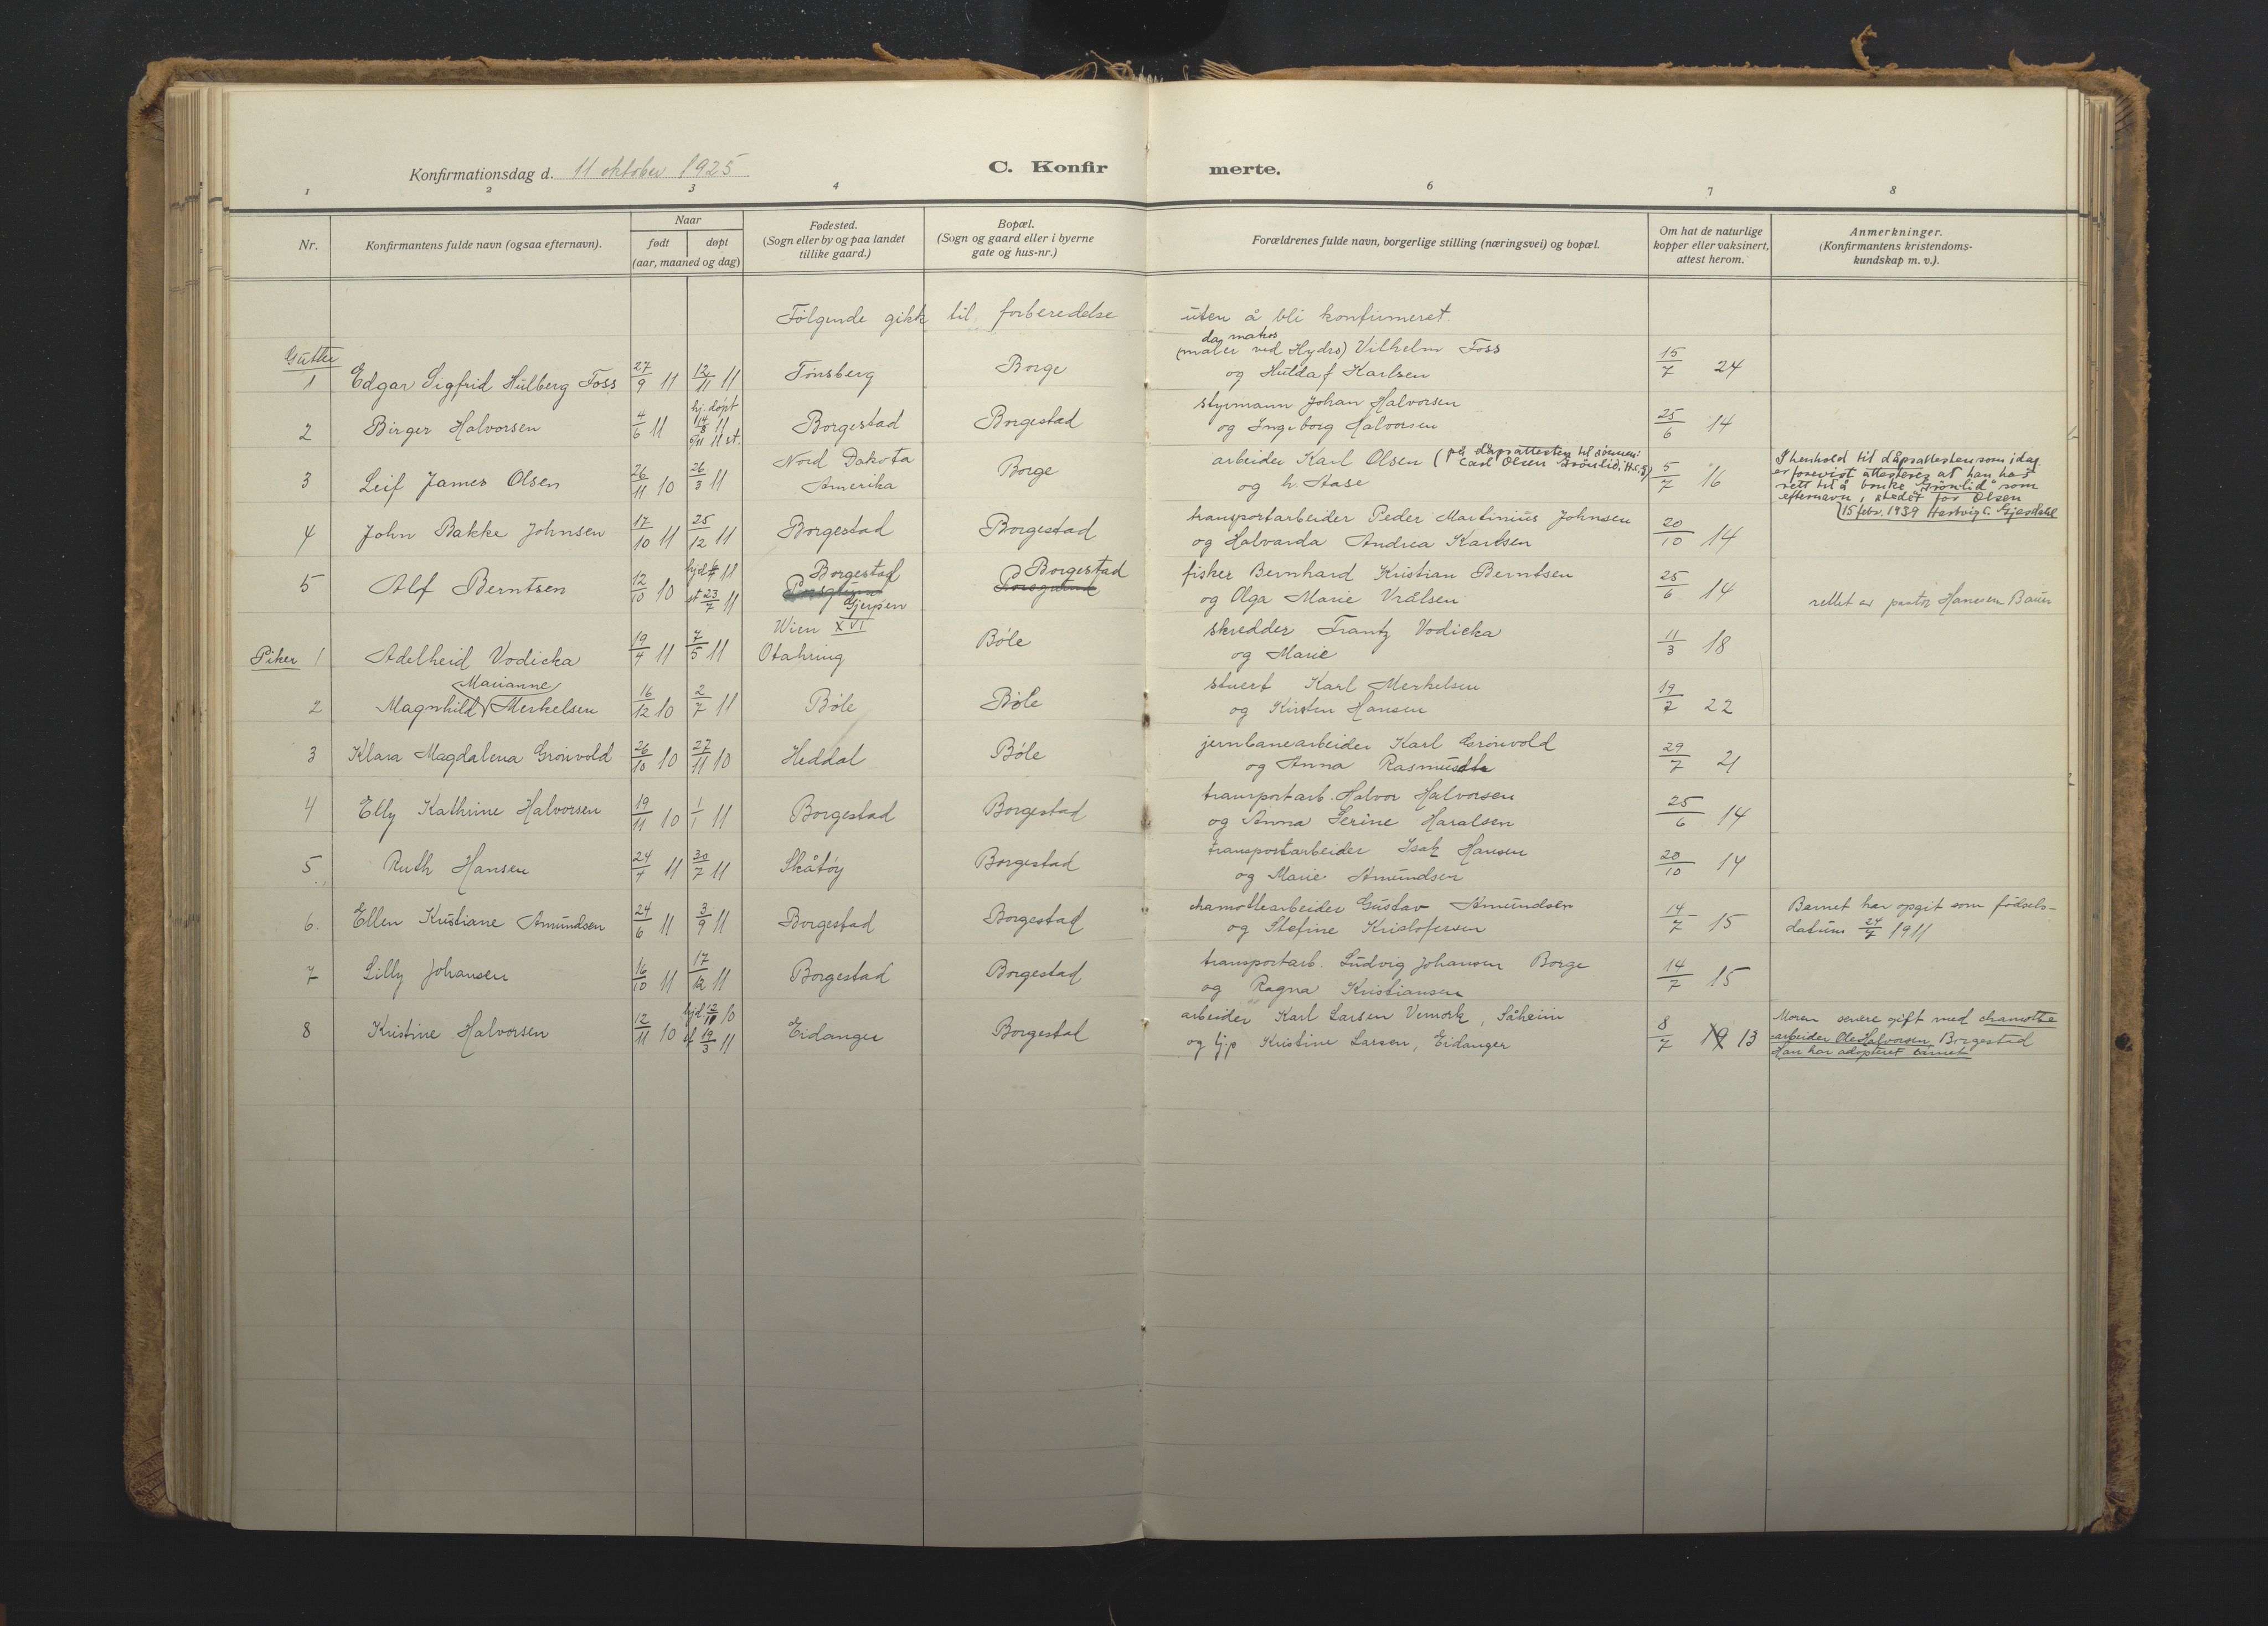 Konfirmationsdag d. 11 oktober 1925
C. Konfir merte.
1 2 3 4 6 7 8
Nr.
Konfirmantens fulde navn (ogsaa efternavn).
Naar
født døpt
(aar, maaned og dag)
Fødested.
(Sogn eller by og paa landet
tillike gaard.)
Bopæl.
(Sogn og gaard eller i byerne
gate og hus-nr.)
Forældrenes fulde navn, borgerlige stilling (næringsvei) og bopæl.
Om hat de naturlige
kopper eller vaksinert,
attest herom.
Anmerkninger.
(Konfirmantens kristendoms-
kundskap m. v.).
Følgende gikk til forberedelse uten å bli konfirmeret.
Gutter
1 Edgar Sigfrid Hülberg Foss 27/9 11 12/11 11 Tønsberg Borge
(maler ved Hydro) Vilhelm Foss
og Hulda f Karlsen
15/7 24
2 Birger Halvorsen 4/6 11 hj. døpt 14/8 11 5/11 11 st. Borgestad Borgestad
styrmann Johan Halvorsen
og Ingeborg Halvorsen
25/6 14
3 Leif James Olsen 26/11 10 26/3 11 Nord Dakota
Amerika
Borge
arbeider Karl Olsen (på dåpsattesten til sønnen:
Carl Olsen Grönlid. H.C.G)
og h. Aase
5/7 16
I henhold til dåpsattesten som idag
er forevist attesteres at han har
rett til å bruke "Grönlid" som
efternavn, stedet for Olsen
15 febr. 1939 Hartvig C. Gjerdahl
4 John Bakke Johnsen 17/10 11 25/12 11 Borgestad Borgestad
transportarbeider Peder Martinius Johnsen
og Halvarda Andrea Karlsen
20/10 14
5 Alf Berntsen 12/10 10 hjd 11 st 23/7 11 Borgestad
Porsgrund
Gjerpen
Borgestad
Porsgrund
fisker Bernhard Kristian Berntsen
og Olga Marie Vrålsen
25/6 14
rettet av pastor Hansen Bauer
Piker 1 Adelheid Vodicka 19/4 11 7/5 11 Wien XVI
Otahring
Bøle
skredder Frantz Vodicka
og Marie
11/3 18
Marianne
2 Magnhild Merkelsen 16/12 10 2/7 11 Bøle Bøle
stuert Karl Merkelsen
og Kirsten Hansen
19/7 22
3 Klara Magdalena Grönvold 26/10 10 27/11 10 Heddal Bøle
jernbanearbeider Karl Grönvold
og Anna
29/7 21
4 Elly Kathrine Halvorsen 19/11 10 1/1 11 Borgestad Borgestad
transportarb. Halvor Halvorsen
og Anna Serine Haralsen
25/6 14
5 Ruth Hansen 24/4 11 30/7 11 Skåtøy Borgestad
transportarbeider Isak Hansen
og Marie Amundsen
20/10 14
6. Ellen Kristiane Amundsen 24/6 11 3/9 11 Borgestad Borgestad
chamottearbeider Gustav Amundsen
og Stefine Kristofersen
14/7 15
Barnet har opgit som fødsels-
datum 24/7 1911
7 Lilly Johansen 16/10 11 17/12 11 Borgestad Borgestad
transportarb. Ludvig Johansen Borge
og Ragna Kristiansen
14/7 15
8 Kristine Halvorsen 12/11 10 hjd. 12/11 10 st 19/3 11 Eidanger Borgestad
arbeider Karl Larsen Vemork, Såheim
og tj.p Kristine Larsen, Eidanger
8/7 13
Moren senere gift med chamotte
arbeider Ole Halvorsen, Borgestad
Han har adopteret barnet